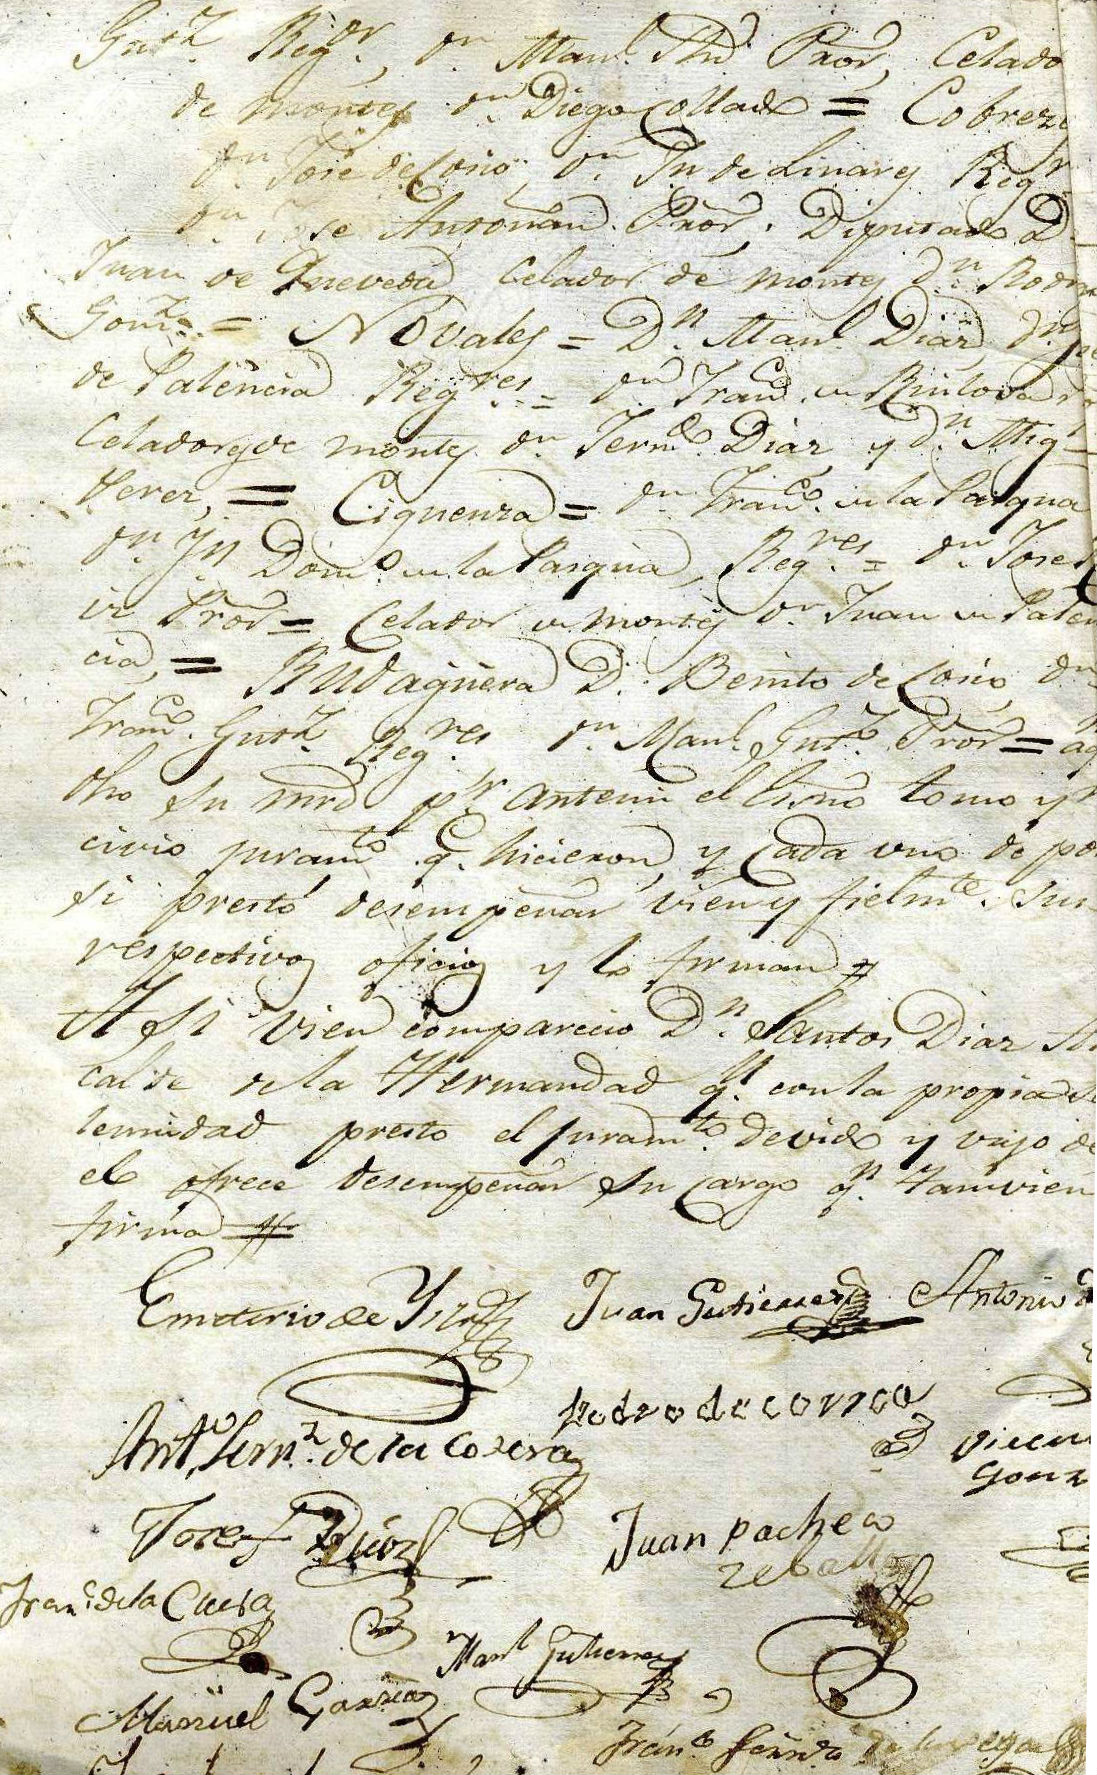 Gutz. Regor, dn. Manl. Pror, Celado
de montes dn. Diego Collado = Cobrez
dn. José de Cosio, dn. Jn de Linares Regr
dn. Jose Antonian Pror. Diputado D.
Juan de Quevedo Celador de montes Dn. Rodri
Gonz. = Novales = Dn. Manl Diaz, dn.
de Palencia Regres. = dn Franco. de Ruiloba
Celadores de montes dn. Ferndo. Diaz y dn. Mig
Perez, = Ciguenza = dn. Franco. de la Pasqua
dn. Jn Domo. de la Pasqua, Regres. = dn. Jose
Pror = Celador de montes dn. Juan de Palen
cia, = Rudaguera D. Benito de Cosio, dn
Franco. Gutz. Regres dn. Manl. Gutz. Pror =
dho su mrd pr. antemi el Esno tomo y
civio juramto. q. hicieron, y cada uno de por
si prestó desempeñar vien y fielmte. sus
respectivos oficios y lo firman #
Asi vien comparecio Dn. Santos Diaz Al
calde de la Hermandad qn. con la propia so
lemnidad presto el juramto. devido y vajo de
el ofrece desempeñar su cargo qn. tamvien
firma #
Emeterio de Juan Gutierrez Antonio
Pedro de Correa
Anto. Fernz. de la Cotera Vicen
Gonz
Josef Diaz Juan pacheco
Zeballos
Franco. de la Cuesta
Manl Gutierrez
Manuel Garcia
Franco Fernz de la vega